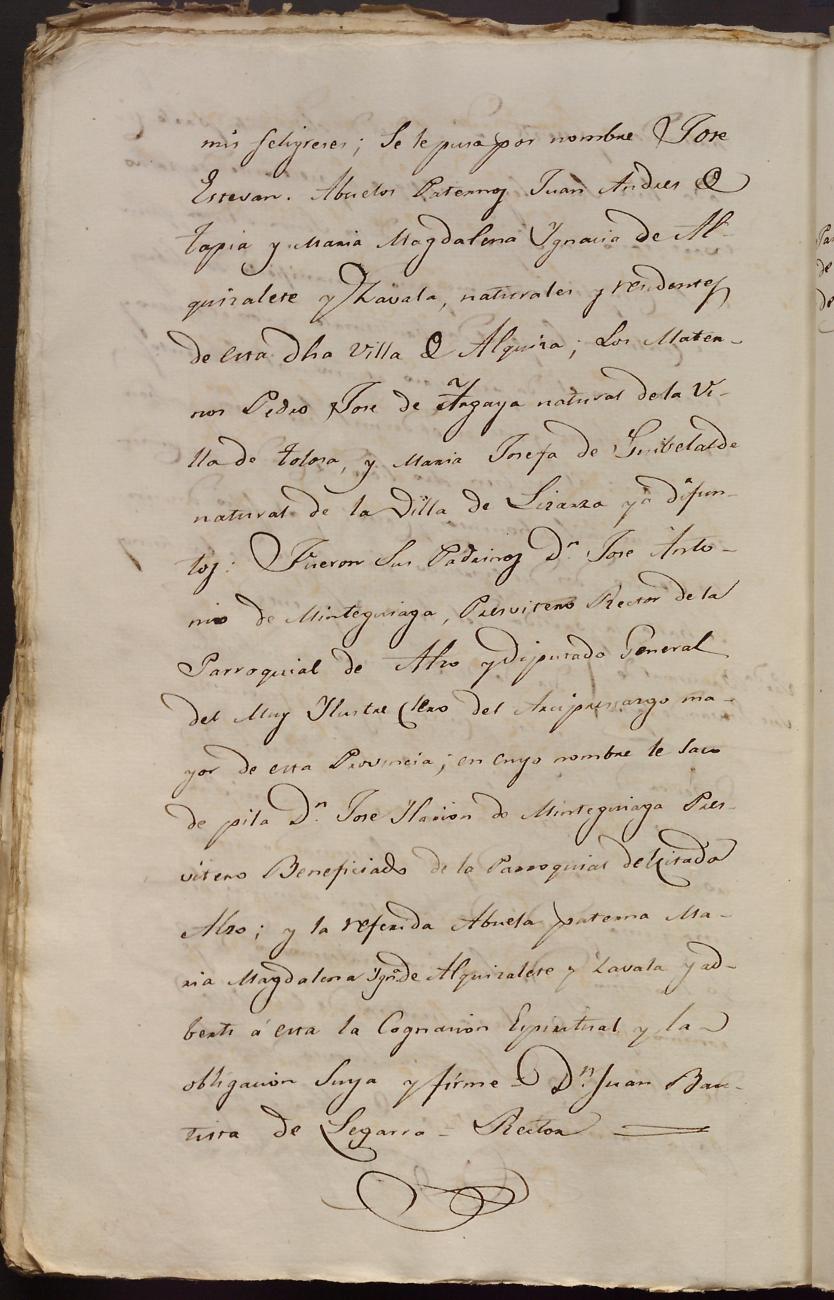 mis feligreses; Se le puso por nombre Jose
Estevan. Abuelos Paternos Juan Andres de
tapia y Maria Magdalena Ygnacia de Al-
quizalete y Zavala, naturales y residentes
de esta dha Villa de Alquiza; Los Mater-
nos Pedro Jose de Yrazaya natural de la Vi-
lla de tolosa, y Maria Josefa de Guibelalde
natural de la Villa de Lizarza ya difun-
tos: Fueron Sus Padrinos Dn. Jose Anto-
nio de Minteguiaga, Presvitero Rector de la
Parroquial de Alzo y Diputado General
del Muy Ylustre Clero del Arciprestazgo ma-
yor de esta Provincia; en cuyo nombre le Saco
de pila Dn. Jose Ylarion de Minteguiaga Pres-
vitero Beneficiado de la Parroquial del Citado
Alzo; y la referida Abuela paterna Ma-
ria Magdalena Ygna. de Alquizalete y Zavala y ad-
berti á esta la Cognacion Espiritual y la
obligacion Suya y firme = Dn. Juan Bau-
tista de Legarra = Rector
Pa
de
de